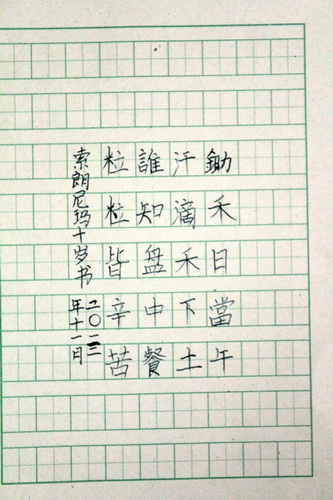 鋤禾日當午
汗滴禾下土
誰知盘中餐
粒粒皆辛苦
索朗尼玛十岁书
二〇一二
年十一月